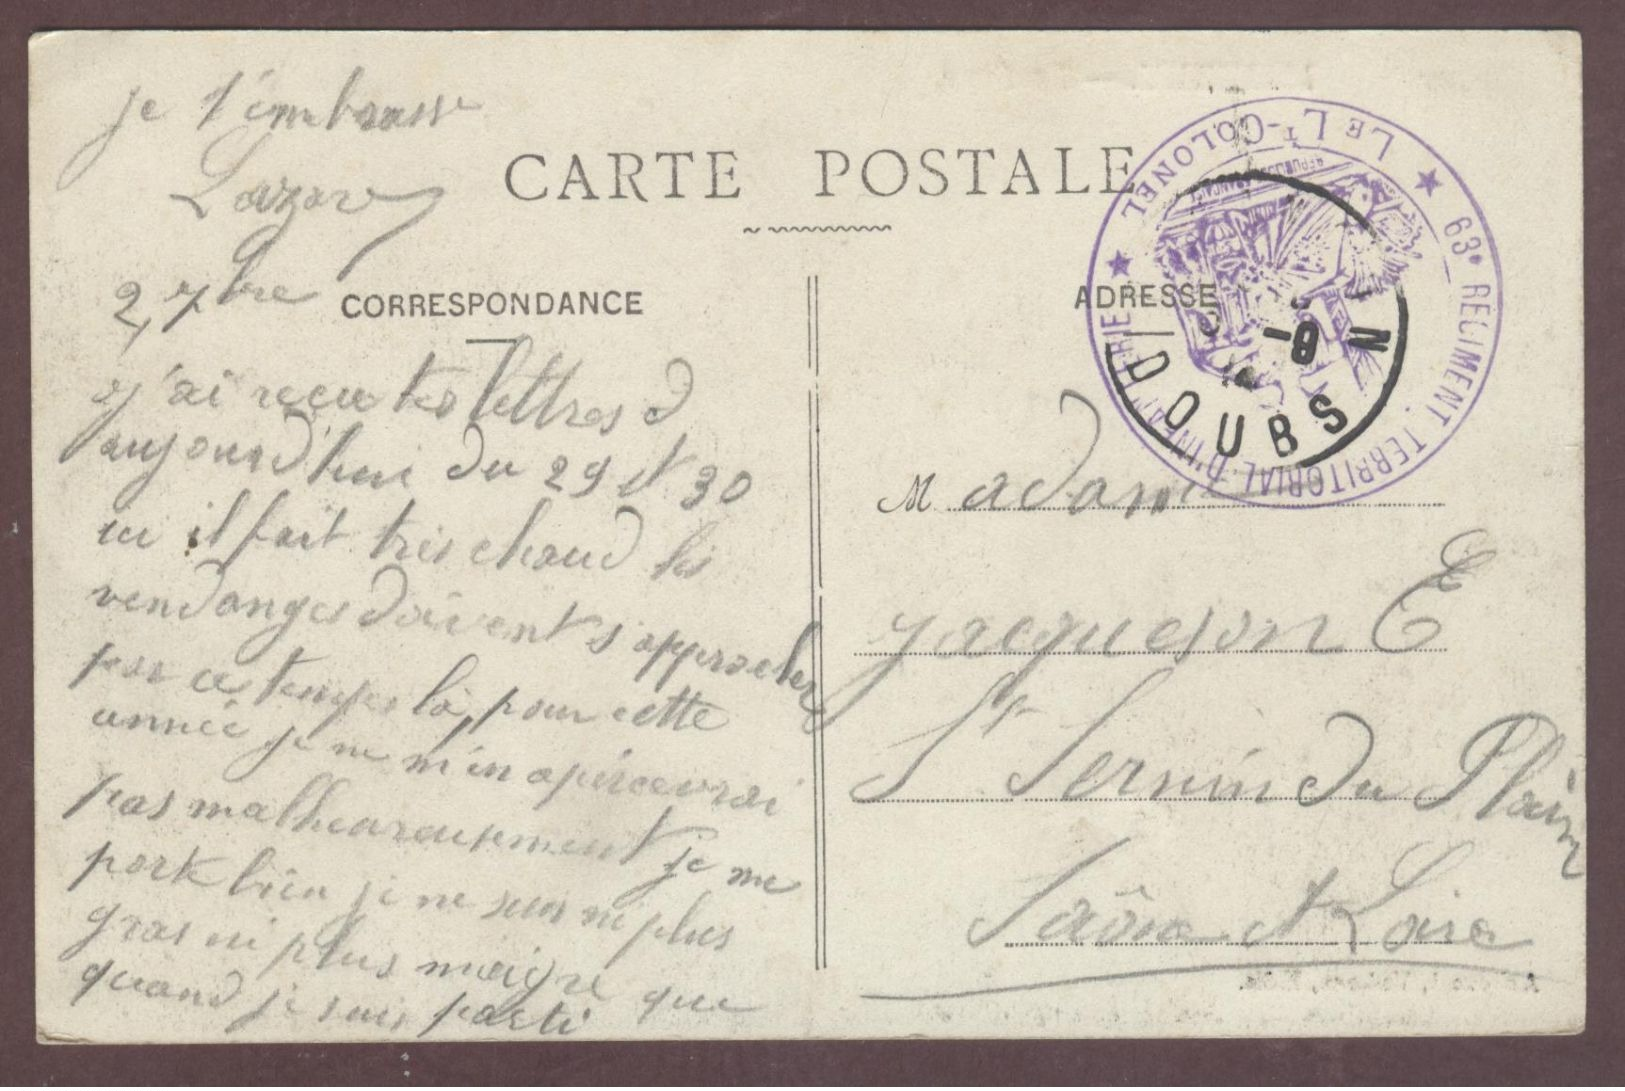 je t'embrasse
Lazare
CARTE POSTALE
2 7bre
CORRESPONDANCE
j'ai reçu tes lettres d
aujourd'hui du 29 et 30
ici il fait très chaud les
vendanges doivent s'approcher
par ce temps là, pour cette
année je ne m'en apercevrai
pas malheureusement je me
porte bien je ne suis ni plus
gras ni plus maigre que
quand je suis parti
LE LT-COLONEL
63e RÉGIMENT TERRITORIAL D'INFANTERIE
RÉPUBLIQUE FRANÇAISE
ADRESSE
-8
DOUBS
Madame
Jacqueson E
St Sernin du Plain
Saône et Loire